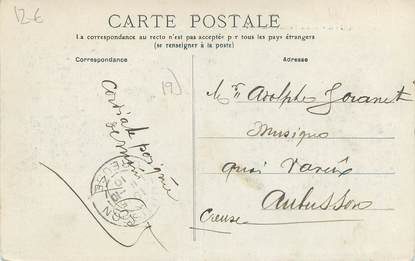 12€
CARTE POSTALE
La correspondance au recto n'est pas acceptée p r tous les pays étrangers
(se renseigner à la poste)
Correspondance
Adresse
19
Cordiale poignée
de main
Mr Adolphe
Musique
quai Vareix
Aubusson
Creuse